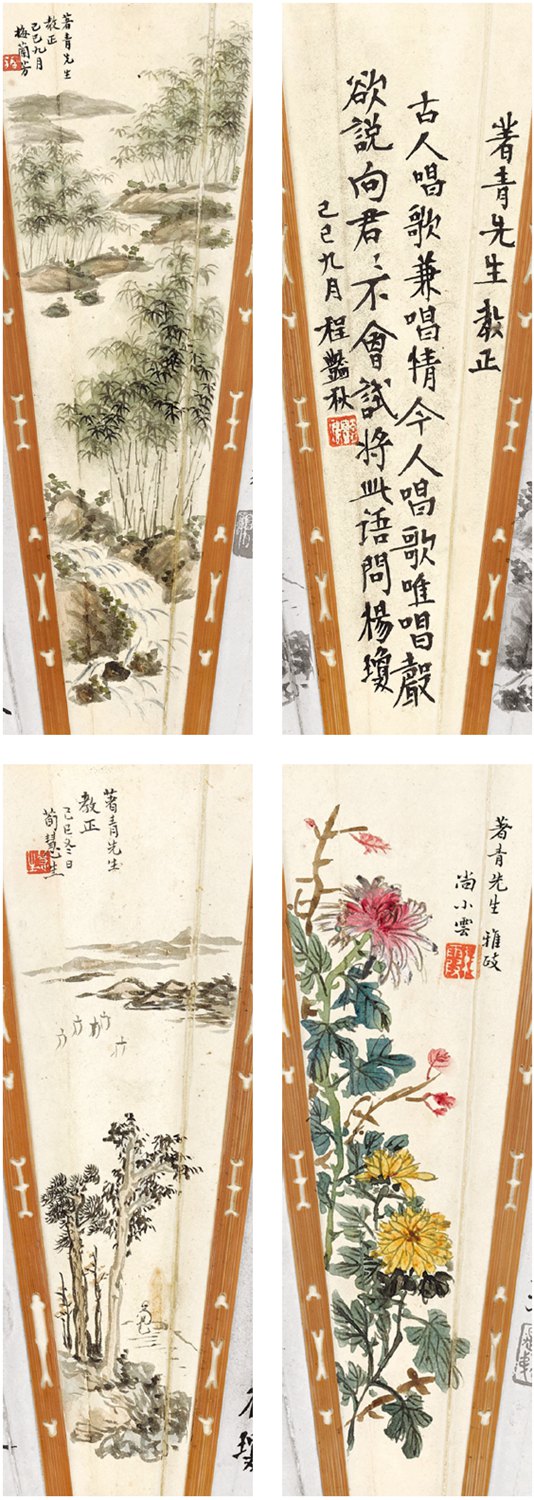 著青先生
教正
己巳九月
梅蘭芳
著青先生 教正
古人唱歌兼唱情今人唱歌唯唱聲
欲說向君〻不會試將此語問楊瓊
己巳九月 程豔秋
著青先生
教正
己巳冬日
荀慧生
著青先生 雅政
尚小雲